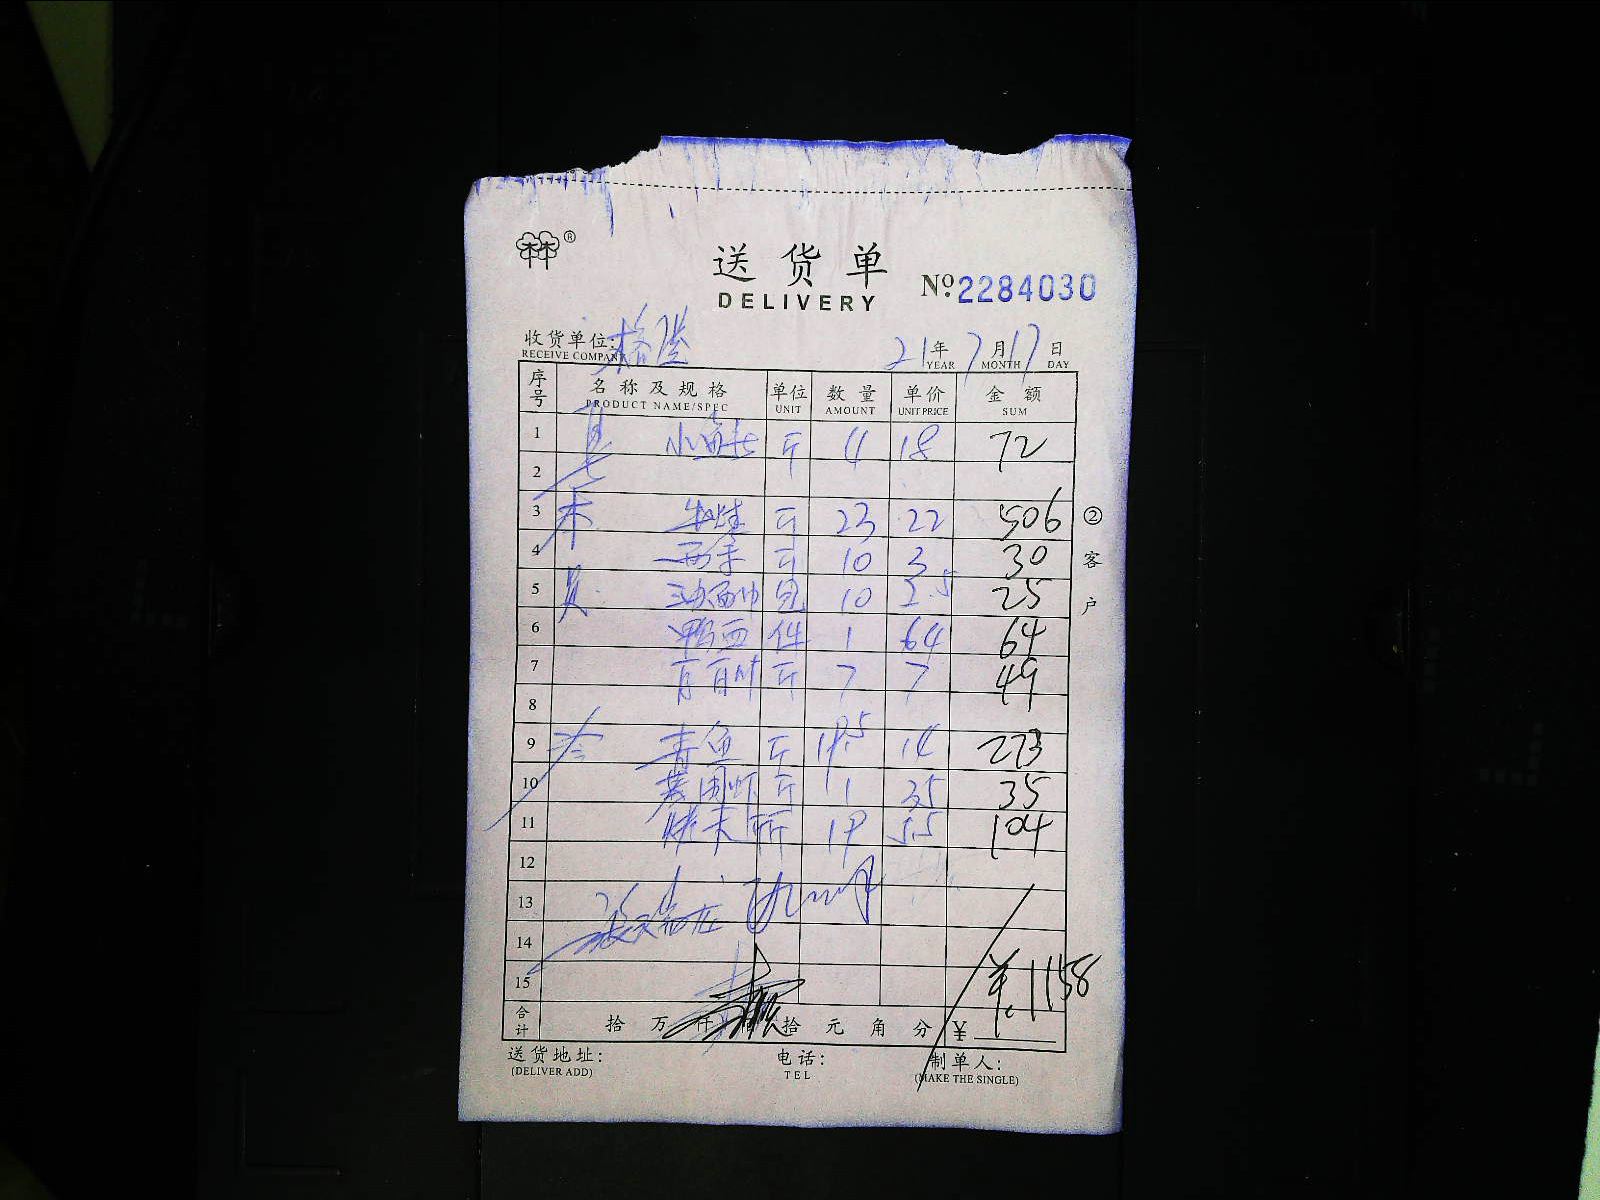 ®
送货单
DELIVERY
Nº 2284030
收货单位: 格
21年7月17日
RECEIVE COMPANY YEAR MONTH DAY
序号 名称及规格 单位 数量 单价 金额
PRODUCT NAME/SPEC UNIT AMOUNT UNIT PRICE SUM
1 斤 4 18 72
2
3 牛蛙 斤 23 22 506
4 西芹 斤 10 3 30
5 包 10 2.5 25
6 鸭血 件 1 64 64
7 斤 7 7 49
8
9 青鱼 斤 19.5 14 273
10 基围虾 斤 1 35 35
11 斤 19 5.5 104
12
13
14
15 羊.1158
合计 拾 万 仟 佰 拾 元 角 分 ¥
送货地址: 电话: 制单人:
(DELIVER ADD) TEL (MAKE THE SINGLE)
②客户